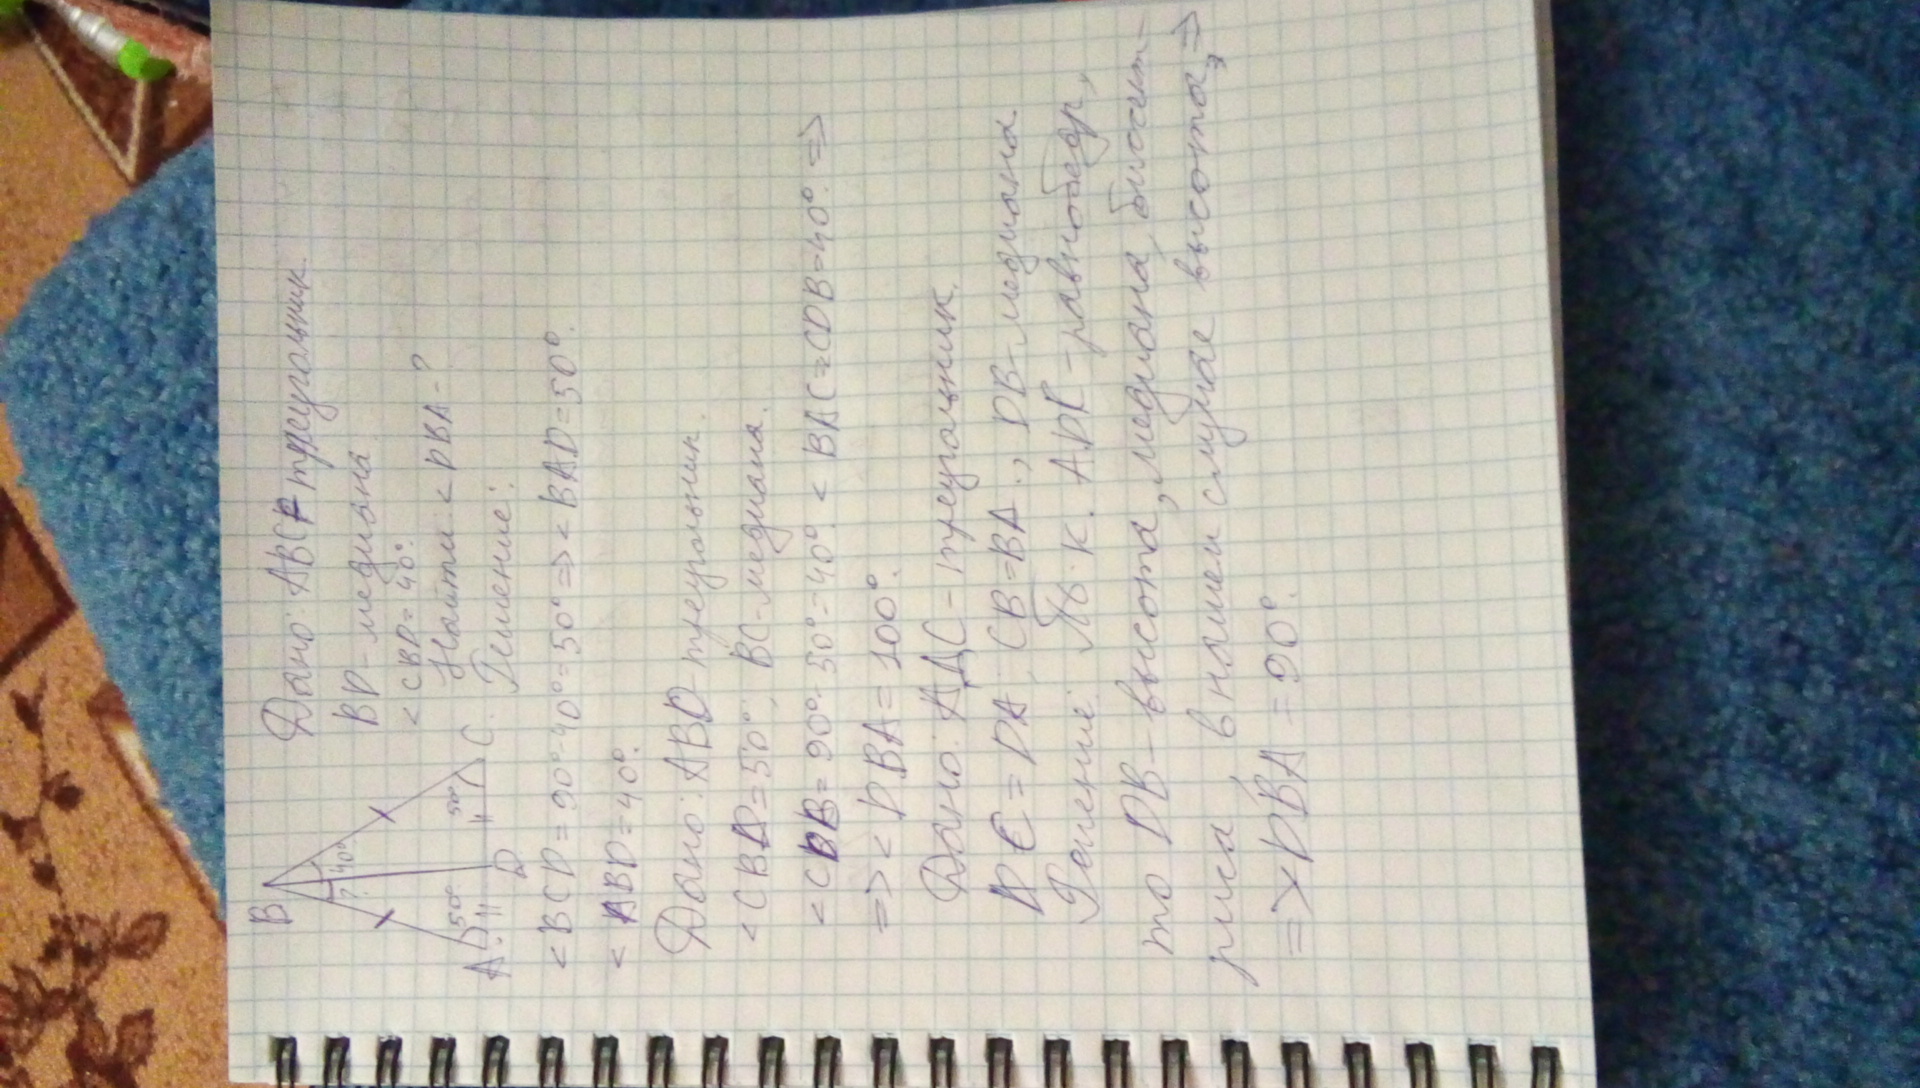 Дано: ABC треугольник.
BD - медиана
< CBD = 40°.
Найти: < DBA - ?
Решение:
B
? 40°
A 50° D 50° C.
< BCD = 90° - 40° = 50° => < BAD = 50°.
< ABD = 40°.
Дано: ABD - треугольник.
< CBD = 50°; BC - медиана.
< CDB = 90° - 50° = 40°. < BAC = CDB = 40°. =>
=> < DBA = 100°.
Дано: АДС - треугольник.
DC = DA; CB = BA; DB - медиана
Решение: Т.к. ADC - равнобедр,
то DB - высота, медиана, биссект-
риса, в нашем случае высота, =>
=> DBA = 90°.